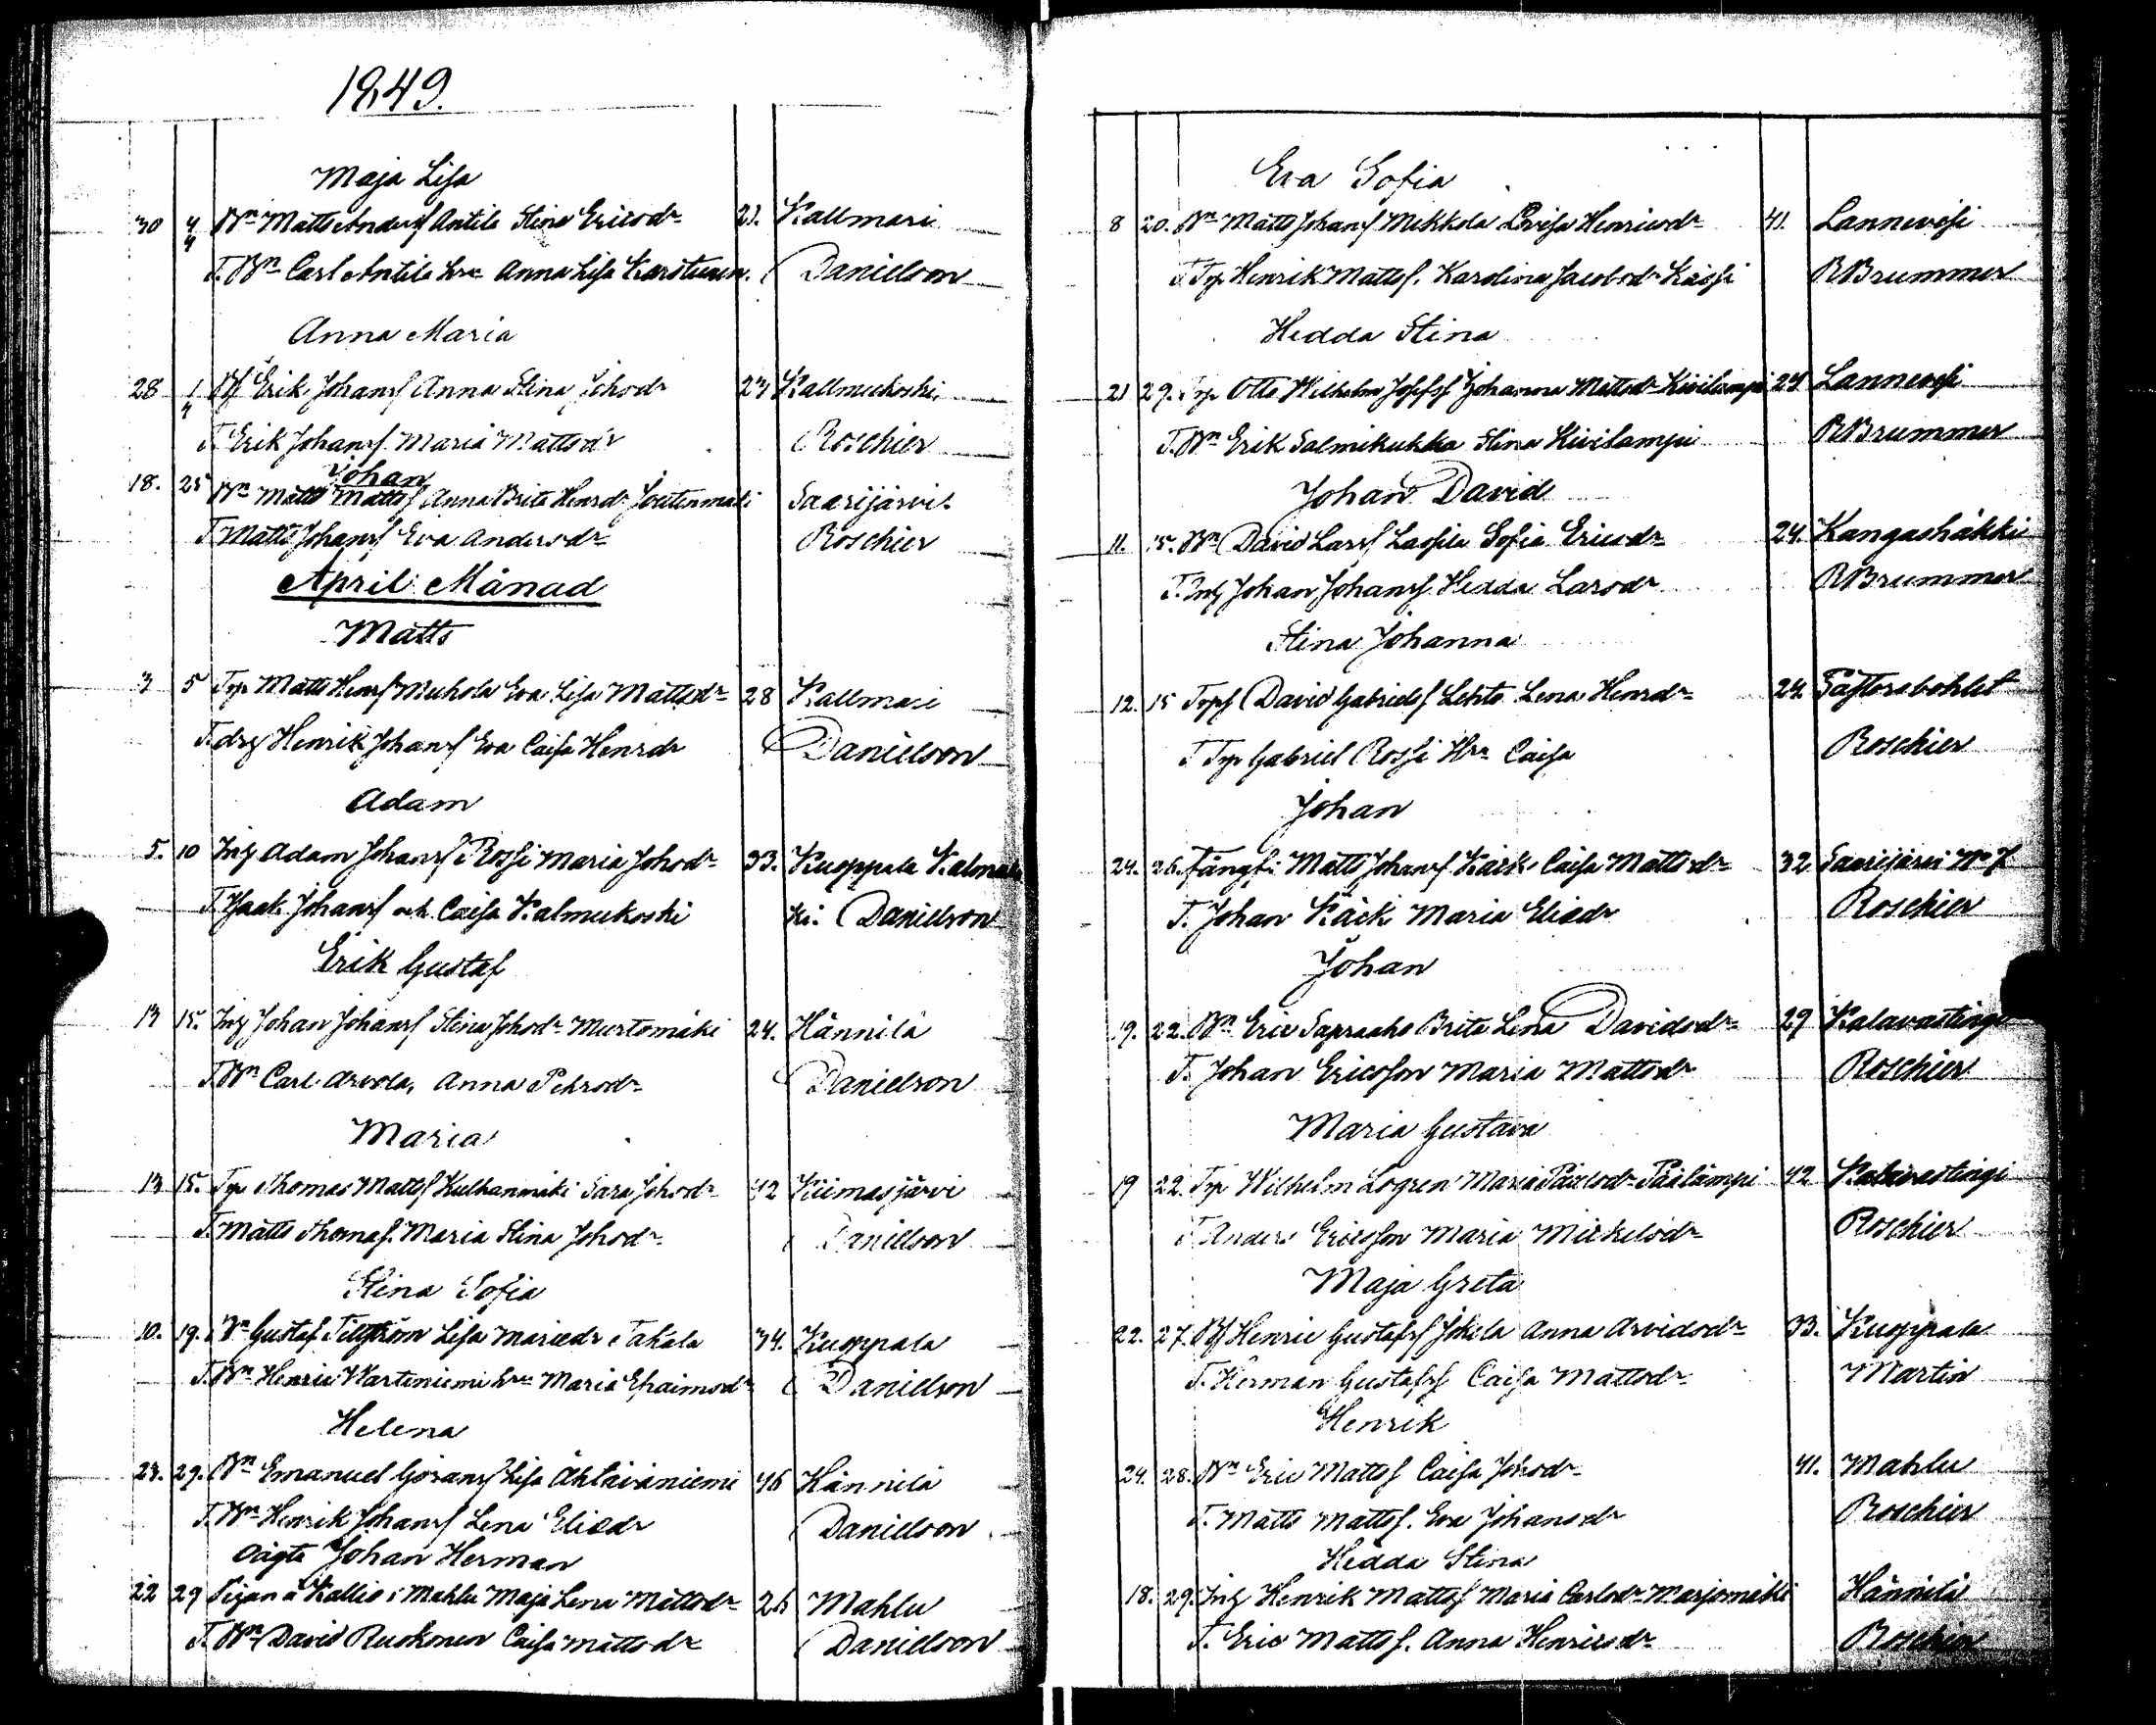 1849.
Maja Lisa
30 4/4 Bn Matts Andersf Antila Stina Ericsdr 21. Kallmari
T. Bn Carl Antila hru Anna Lisa Karstunen. Danielson
Anna Maria
28 1/4 Bf Erik Johansf Anna Stina Johsdr 23 Kallmukoski
T. Erik Johansf Maria Mattsdr Roschier
Johan
18. 25 Bn Matts Mattsf Anna Brita Henrdr Joutenmäki Saarijärvi.
T Matts Johansf Eva Andersdr Roschier
April Månad
Matts
3 5 Trp Matts Henrsf Muhola Eva Lisa Mattsdr 28 Kallmari
T. drg Henrik Johansf Eva Caisa Henrdr Danielson
Adam
5. 10 Inh Adam Johansf Rossi Maria Johsdr 33. Kuoppala Kalmukos
T. Isaak Johansf och Caisa Kalmukoski ki. Danielson
Erik Gustaf
13 15. Inh Johan Johansf Stina Johsdr Murtomäki 24. Hännilä
T Bn Carl Arvola, Anna Pehrsdr Danielson
Maria
13 15. Trp Thomas Mattsf Kulhanmäki Sara Johsdr 42 Kiimasjärvi
T. Matts Thomasf. Maria Stina Johsdr Danielson
Stina Sofia
10. 19. Bn Gustaf Tillström Lisa Mariedr Takala 34. Kuoppala
T. Bn Henric Harteniemi hru Maria Efraimsdr Danielson
Helena
23. 29. Bn Emanuel Göransf Lisa Ähtäväniemi 46 Hännilä
T. Bn Henrik Johansf Lena Eliedr Danielson
oägta Johan Herman
22 29 Pigan å Kallio i Mahlu Maja Lena Mattsdr 26 Mahlu
T. Bn David Ruokonen Caisa Mattsdr Danielson
Eva Sofia
8 20. Bn Matts Johansf Mekkola Lovisa Henricsdr 41. Lannevesi
T Trp Henrik Mattsf. Karolina Jacobsdr Kässi RBrummer
Hedda Stina
21 29. Trp Otto Wilhelm Josefsf Johanna Mattsdr Kivilampi 24 Lannevesi
T. Bn Erik Salmikukka Stina Kivilampi RBrummer
Johan David
11. 15. Bn David Larsf Lassila Sofia Ericsdr 24. Kangashäkki
T. Inh Johan Johansf Hedda Larsdr RBrummer
Stina Johanna
12. 15 Trpf David Gabrielsf Lehto Lena Henrdr 24. Pastorsbohlet
T Trp Gabriel Rossi Hru Caisa Roschier
Johan
24. 26. Matts Johansf Käck Caisa Mattsdr 32 Saarijärvi No 7
T. Johan Käck Maria Eliedr Roschier
Johan
19. 22. Bn Eric Sapraaho Brita Lena Davidsdr 29 Kalavastinge
T. Johan Ericsson Maria Mattsdr Roschier
Maria Gustava
19 22. Trp Wilhelm Logren Maria Pavelsdr Päälämpi 42 Kalavastingi
T Anders Ericsson Maria Mickelsdr Roschier
Maja Greta
22. 27. Bf Henric Gustafsf Jokela Anna Arvidsdr 33. Kuoppala
T. Herman Gustafsf Caisa Mattsdr Martin
Henrik
24. 28. Bn Eric Mattsf Caisa Johsdr 41. Mahlu
T. Matts Mattsf. Eva Johansdr Roschier
Hedda Stina
18. 29. Inh Henrik Mattsf Maria Carlsdr Marjomäki Hännilä
T. Eric Mattsf. Anna Henricsdr Roschier